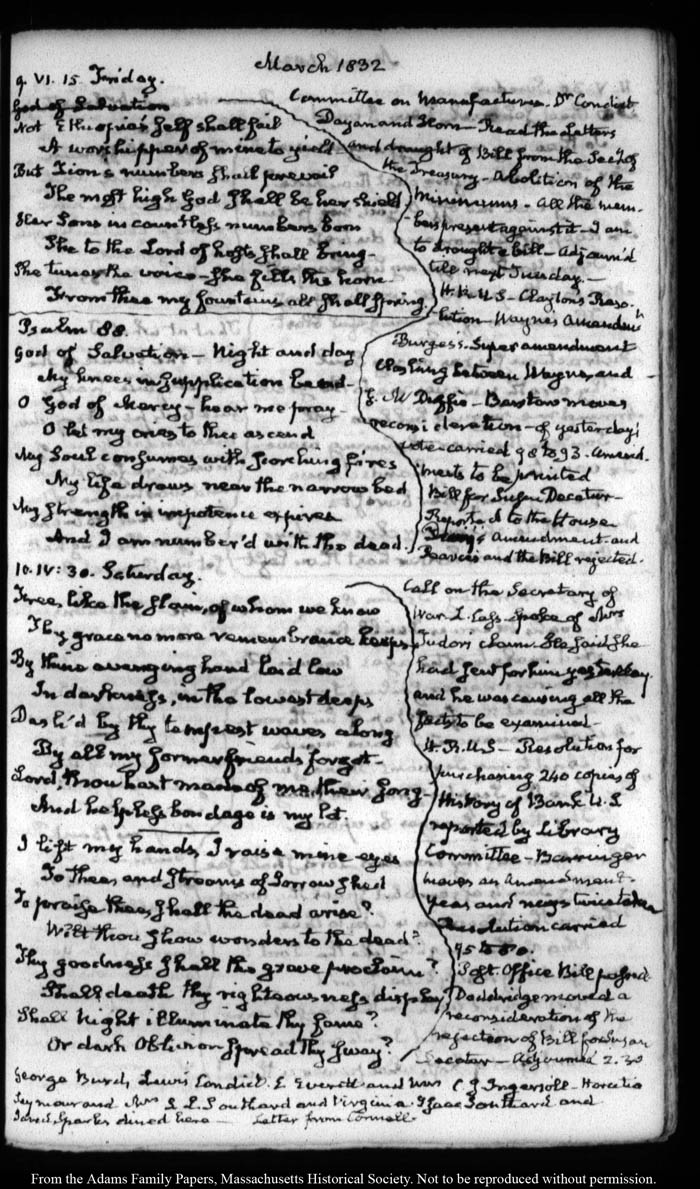 March 1832
9. VI. 15. Friday.
God of Salvation
Not Ethiopia's self shall fail
A worshipper of mine to yield
But Zion's numbers shall prevail
The most high God shall be her shield
Her Sons in countless numbers born
She to the Lord of hosts shall bring
She tunes the voice - She fills the horn
From thee my fountains all shall spring.
Committee on Manufactures. Dr Condict
Dayan and Horn - Read the Letters
and draught of Bill from the Secy of
the Treasury - Abolition of the
minimums - All the mem-
bers present against it - I am
to draught a bill - Adjourn'd
till next Tuesday. -
H.R.U.S - Clayton's Reso-
lution - Wayne's Amendmt
Burgess. Super amendment
Clashing between Wayne, and
Mc Duffie - Barstow moves
reconsideration - of yesterday's
vote - carried 98 to 93. Amend-
ments to be printed
Bill for Susan Decatur -
Reported to the House
Amendment and
and the Bill rejected.
Psalm 88.
God of Salvation - Night and day
My knees in supplication bend -
O God of Mercy - hear me pray -
O let my cries to thee ascend
My Soul consumes with scorching fires
My life draws near the narrow bed
My strength in impotence expires
And I am number'd with the dead.
10. IV: 30. Saturday.
Free, like the slain, of whom we know
Thy grace no more remembrance keeps
By thine avenging hand laid low
In darkness, in the lowest deeps
Dash'd by thy tempest waves along
By all my former friends forgot -
Lord, thou hast made of me, their song -
And helpless bondage is my lot.
I lift my hands, I raise mine eyes
To Thee, and streams of Sorrow shed
To praise thee, shall the dead arise?
Wilt thou show wonders to the dead?
Thy goodness shall the grave proclaim?
Shall death thy righteousness display?
Shall Night illuminate thy fame?
Or dark Oblivion spread thy sway?
Call on the Secretary of
War L. Cass - spoke of Mrs
claim. He said she
had sent for him yesterday
and he was causing all the
facts to be examined -
H.R.U.S - Resolution for
purchasing 240 copies of
History of Bank U.S
reported by Library
Committee - Barringer
moves an Amendment -
yeas and nays twice taken
Resolution carried
95 to 80.
Post. Office Bill passed
Doddridge moved a
reconsideration of the
rejection of Bill for Susan
Decatur - Adjourned 2.30
George Burd, Lewis Condict. E Everett and Mrs C. J. Ingersoll - Horatio
Seymour and Mrs S. L. Southard and Virginia. Isaac Southard and
Jared Sparks dined here - Letter from Connell -
From the Adams Family Papers, Massachusetts Historical Society. Not to be reproduced without permission.